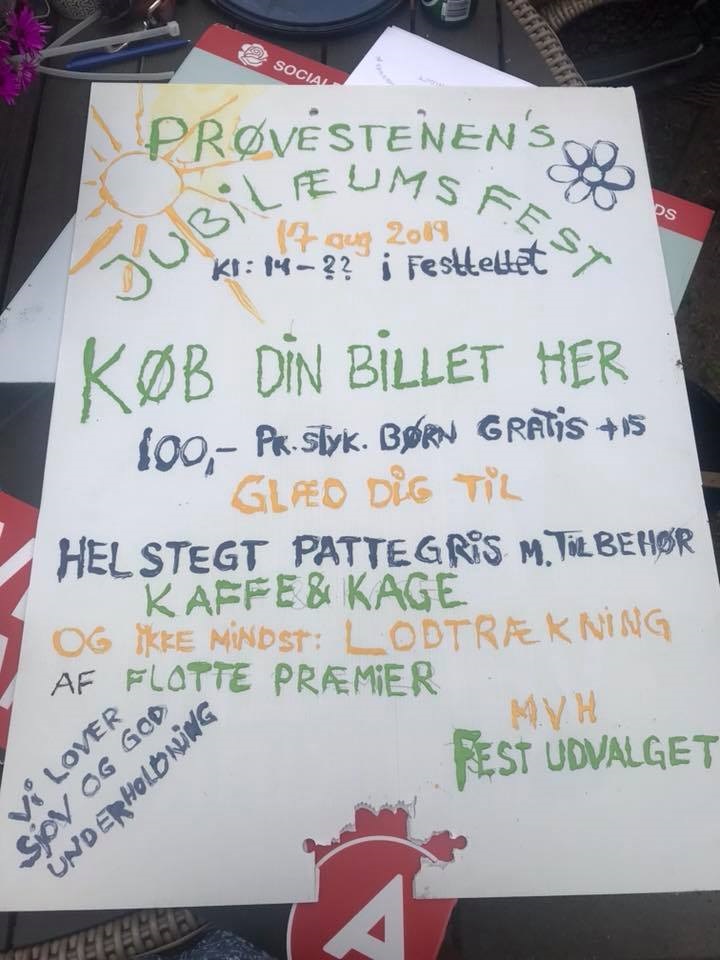 SOCIALD
DS
PRØVESTENEN'S
JUBILÆUMS FEST
17 aug 2019
Kl: 14 - ?? i Festteltet
KØB DIN BILLET HER
100,- PR. STYK. BØRN GRATIS +15
GLÆD DIG TIL
HELSTEGT PATTEGRIS M. TILBEHØR
KAFFE & KAGE
OG IKKE MINDST: LODTRÆKNING
AF FLOTTE PRÆMIER
MVH
FEST UDVALGET
VI LOVER
SJOV OG GOD
UNDERHOLDNING
A